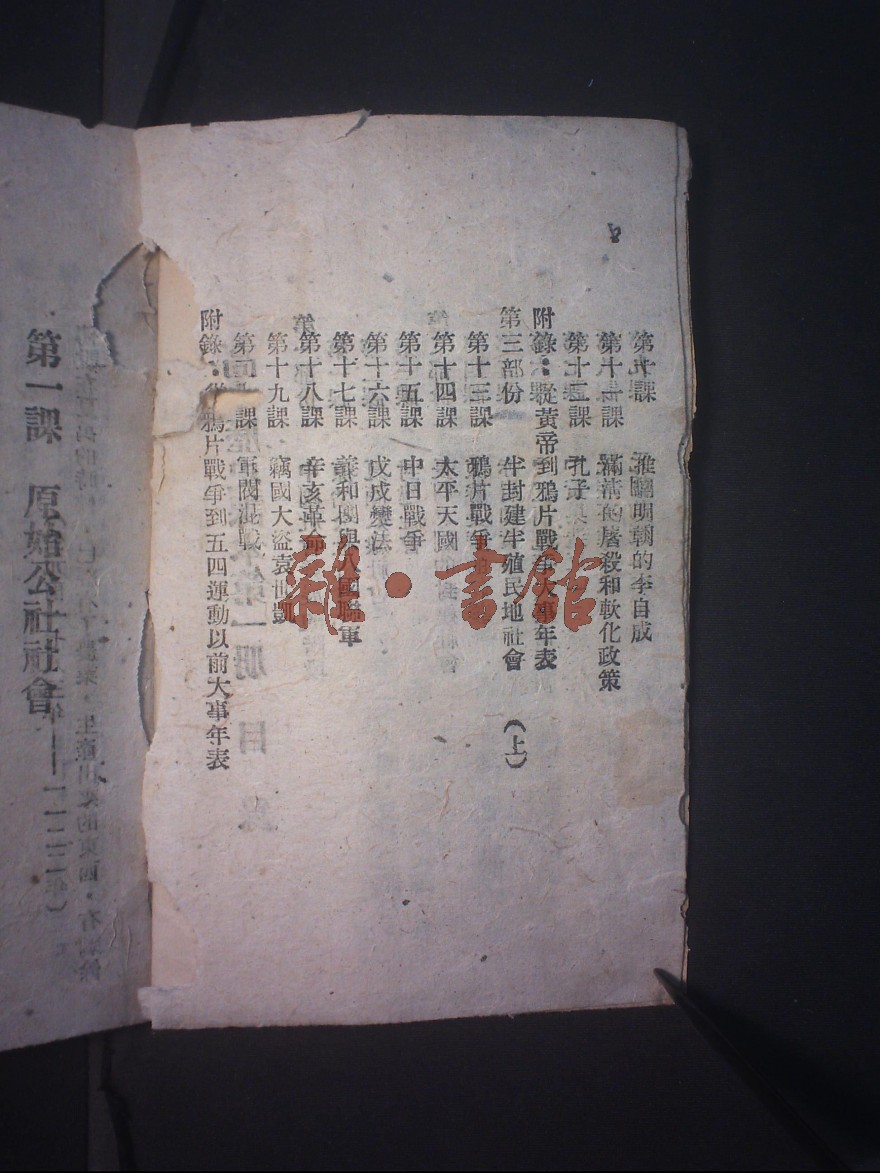 第十課 推翻明朝的李自成
第十一課 滿清的屠殺和軟化政策
第十二課 孔子
附錄：從黃帝到鴉片戰爭大事年表
第三部份 半封建半殖民地社會（上）
第十三課 鴉片戰爭
第十四課 太平天國
第十五課 中日戰爭
第十六課 戊戌變法
第十七課 義和團與八國聯軍
第十八課 辛亥革命
第十九課 竊國大盜袁世凱
第二十課 軍閥混戰
附錄：從鴉片戰爭到五四運動以前大事年表
第一課 原始公社社會
雜·書館